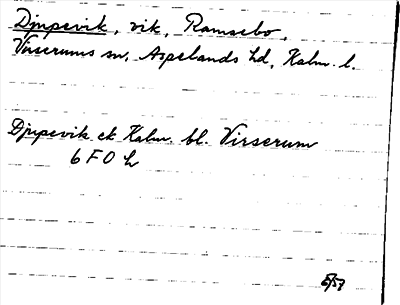 Djupevik, vik, Ramsebo,
Virserums sn, Aspelands hd, Kalm. l.
Djupevik ek Kalm. bl. Virserum
6 F 0 h
5/57